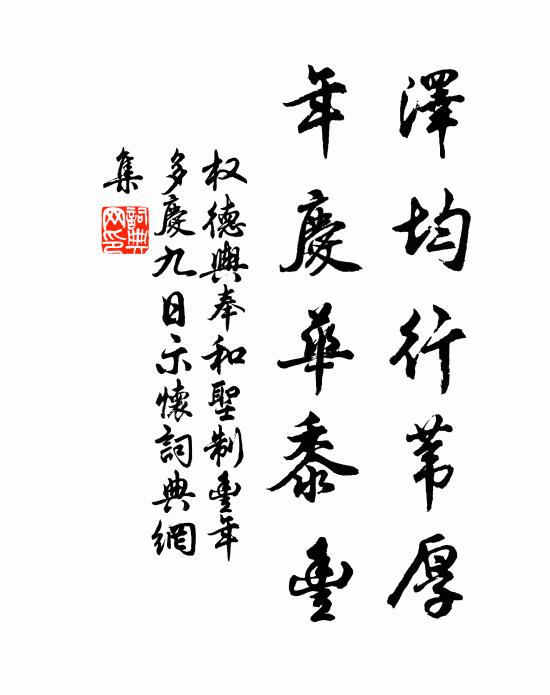 澤均行苇厚
年慶華黍豊
权德輿奉和聖制豊年
多慶九日示懷詞典網
集
詞典网印